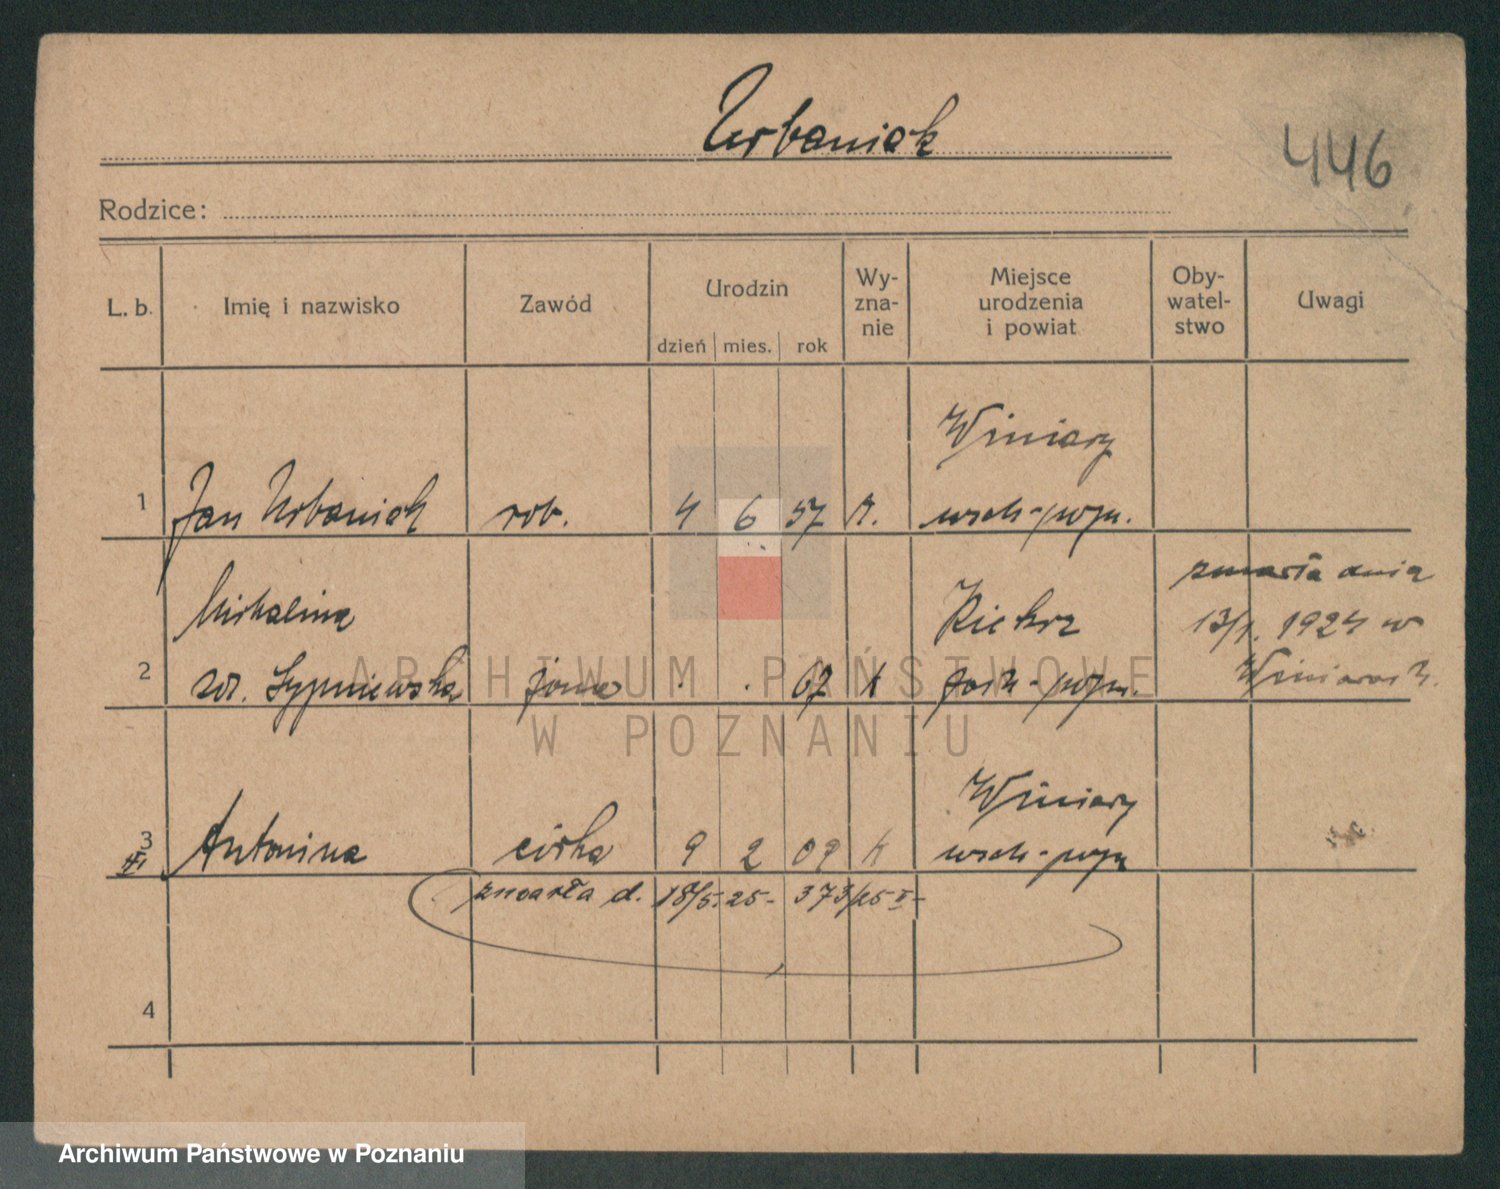 Urbaniak
446
Rodzice:
L. b. Imię i nazwisko Zawód Urodzin dzień mies. rok Wy-zna-nie Miejsce urodzenia i powiat Oby-watel-stwo Uwagi
Winiary
1 Jan Urbaniak rob. 4 6 57 k. wsch-pozn.
Michalina Kiekrz zmarła dnia
13/1. 1924 w
2 zd. Sypniewska żona . . 67 k zach-pozn. Winiarach.
Winiary
3 Antonina córka 9 2 09 k wsch-pozn
zmarła d. 18/5. 25- 373/25
4
ARCHIWUM PAŃSTWOWE
W POZNANIU
Archiwum Państwowe w Poznaniu